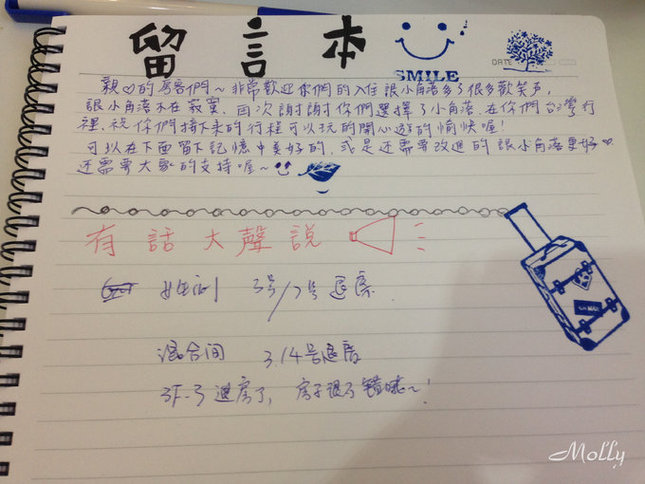 留言本
SMILE
DATE
親♡的房客們~非常歡迎你們的入住讓小角落多了很多歡笑声,
讓小角落不在寂寞,再次謝謝你們選擇了小角落,在你們台灣行
裡,祝你們接下來的行程可以玩的開心遊的愉快喔!
可以在下面留下記憶中美好的,或是还需要改進的讓小角落更好♡
还需要大家的支持喔~
有話大聲說
3号/7号退房
混合间 3.14号退房
3F-3退房了,房子很不错哦~!
Molly